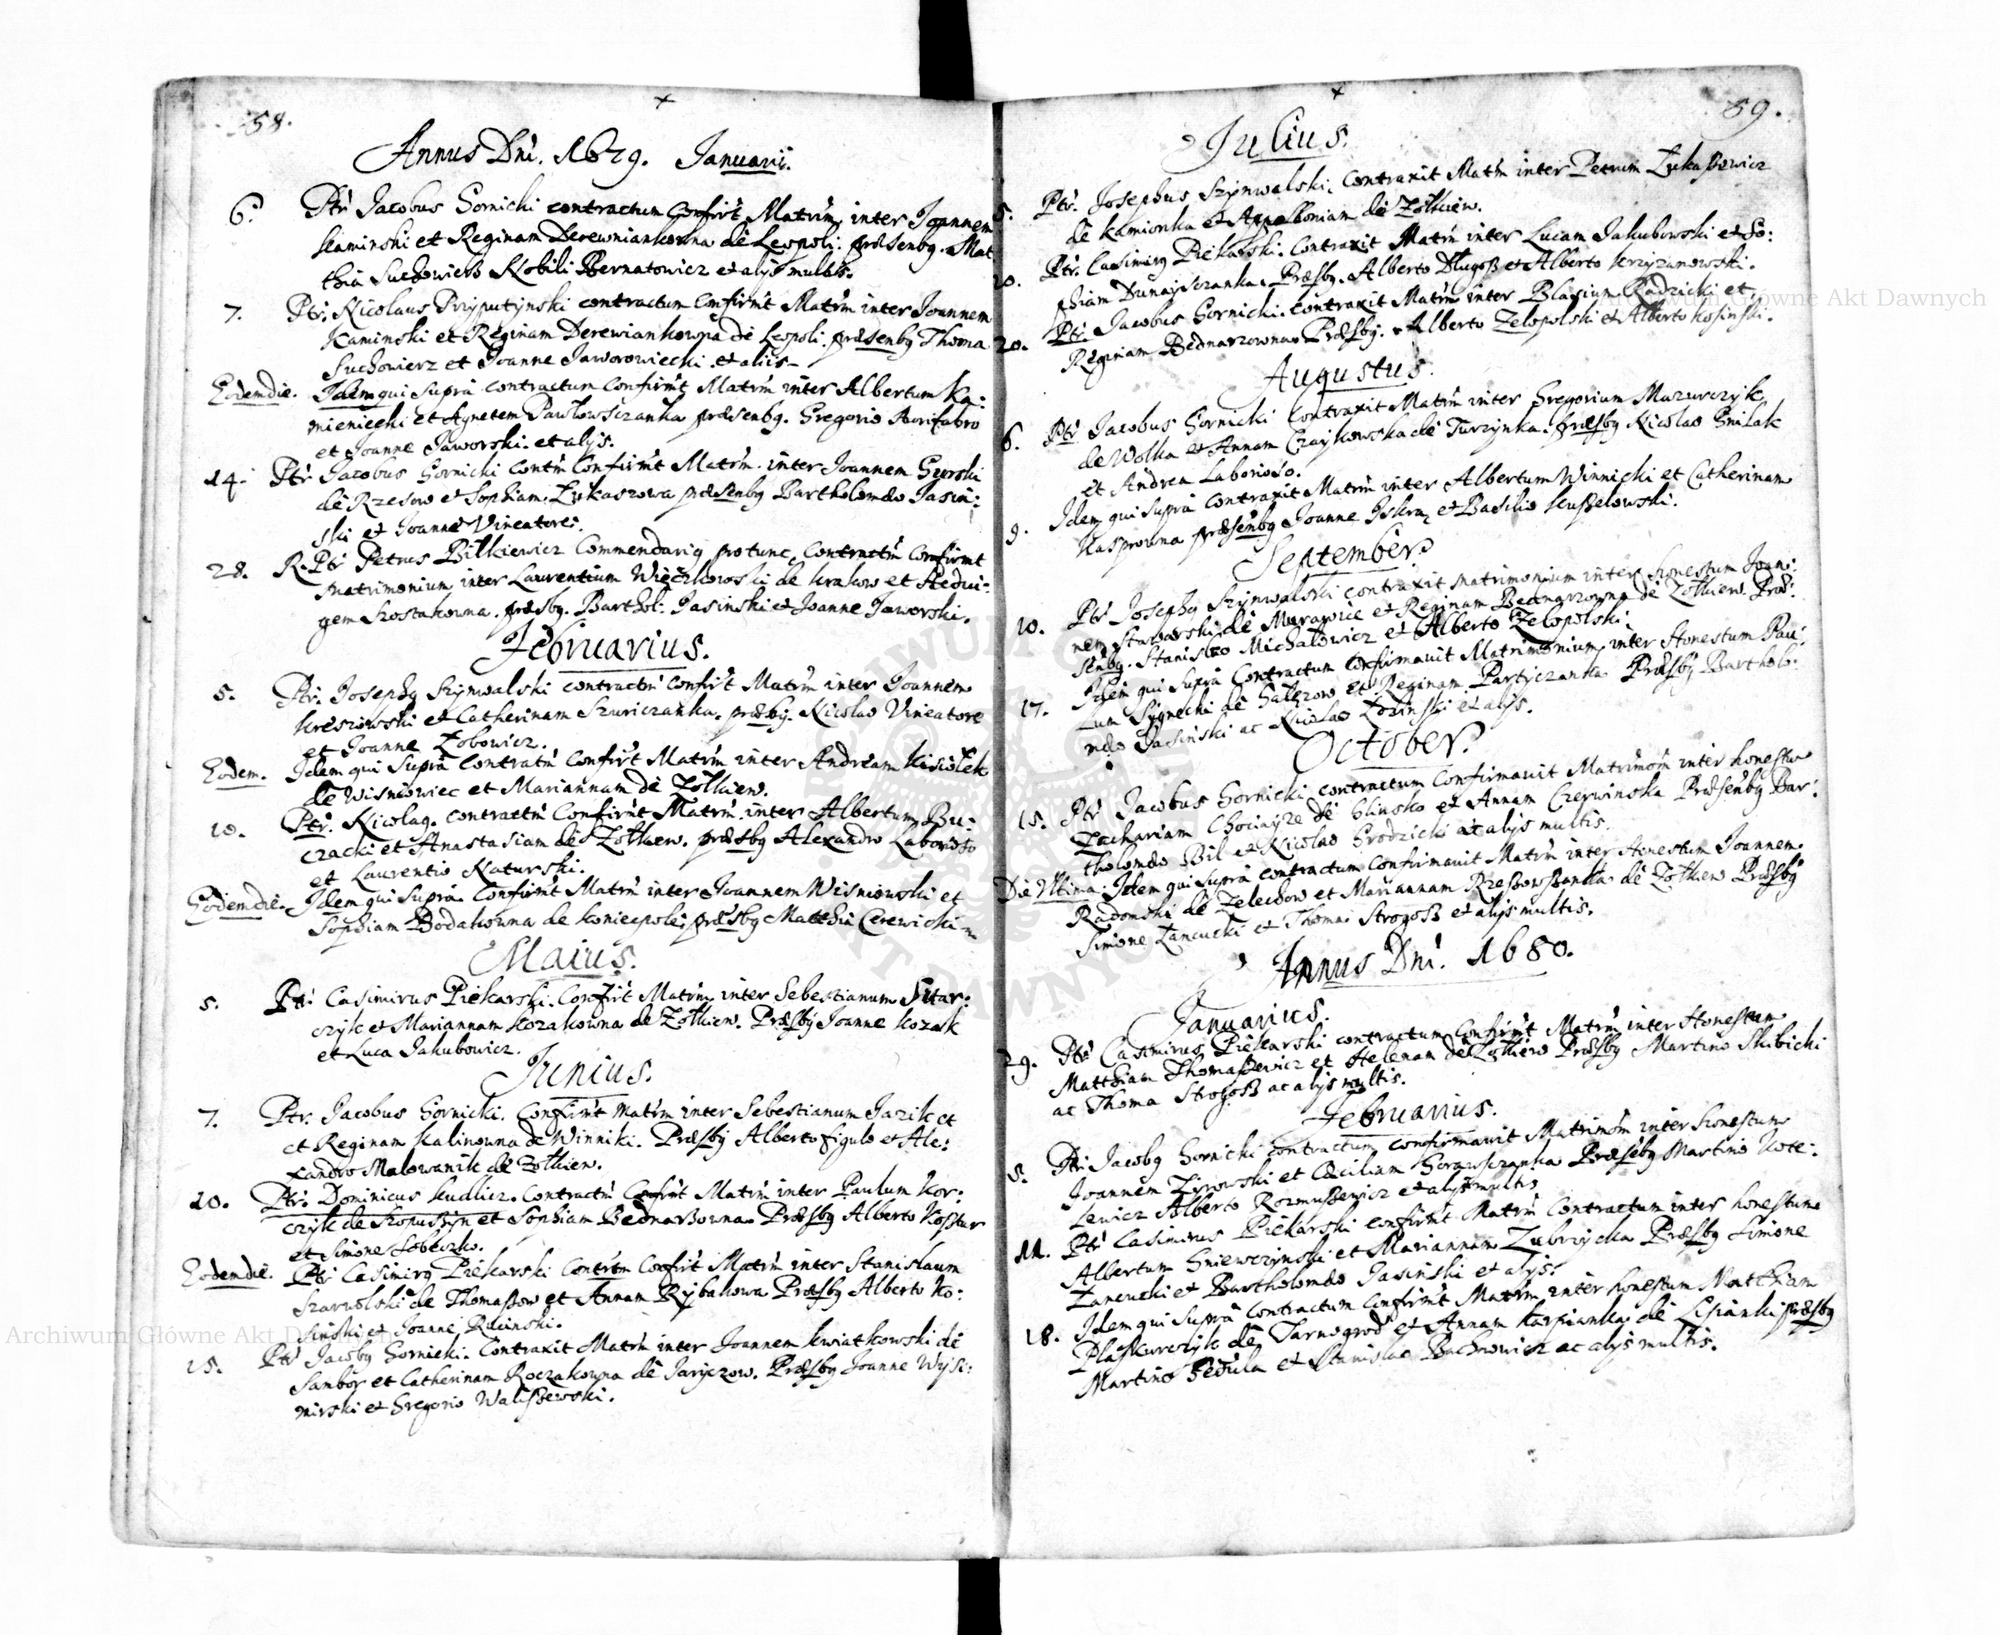 58.
Annus Dni. 1679. Januarii.
6. Ptr Jacobus Gornicki contractum Confirt Matrim inter Joannem
Kaminski et Reginam Derewniankowna de Leopoli. præsenbg. Mat
thia Suchowicz Nobili Bernatowicz et alijs multis.
7. Ptr. Nicolaus Przyputynski contractum Confirmt Matrim inter Joannem
Kaminski et Reginam Derewiankowna de Leopoli. præsenbg Thoma
Suchowierz et Joanne Jaworowiecki. et aliis
Eodem die. Idem qui supra contractum Confirmt Matrim inter Albertum Ka:
mieniecki et Agnetem Pawłowsczanka præsenbg. Gregorio Aurifabro
et Joanne Jaworski. et alijs.
14. Ptr Jacobus Gornicki Contm Confirmt Matrim. inter Joannem Gurski
de Rzesow et Sophiam Łukaszowa præsenbg Bartholomæo Jasin:
ski et Joanne Vineatore.
28. R. Ptr Petrus Bilkiewicz Commendarig protunc, Contractm Confirmt
Matrimonium inter Laurentium Więczkowski de Krakow et Hedui:
gem Kostakowna. præsbg. Barthol: Jasinski et Joanne Jaworski.
Februarius.
5. Ptr. Josephg Szynwalski contractm Confirt Matrim inter Joannem
Kresziwski et Catherinam Szwiczanka. præsbg. Nicolao Vineatore
et Joanne Łobowicz.
Eodem. Idem qui Supra Contratm Confirt Matrim inter Andream Kisiołek
de Wisniowiec et Mariannam de Zołkiew.
10. Ptr. Nicolag. contractm Confirmt Matrim. inter Albertum Bu:
czacki et Anastasiam de Zołkiew. præsbg Alexandro Laborioso
et Laurentio Naturski.
Eodem die. Idem qui Supra. Confirmt Matrim inter Joannem Wisniowski et
Sophiam Bodakowna de Koniecpole: præsbg Matthia Cerewicki
Maius.
5. Ptr. Casimirus Piekarski. Confirt Matrim inter Sebestianum Sitar:
czyk et Mariannam Kozakowna de Zołkiew. Præsbg Joanne Kozak
et Luca Jakubowicz.
Junius.
7. Ptr. Jacobus Gornicki. Confirmt Matrim inter Sebestianum Jazik et
et Reginam Kalinowna de Winniki. Præsbg Alberto figulo et Ale:
xandro Malowanik de Zołkiew.
10. Ptr. Dominicus Kudlicz. Contractm Confirmt Matrim inter Paulum Kor:
czyk de Kropuszyn et Sophiam Bednarzowna. Præsbg Alberto Kosztur
et Simone Sobeczko.
Eodem die. Ptr Casimirg Piekarski Contrm Confirt Matrim inter Stanislaum
Szarwolski de Thomaszow et Annam Rybakowa Præsbg Alberto Ko:
sinski et Joanne Rucinski.
15. Ptr Jacobg Gornicki. Contraxit Matrim inter Joannem Kwiatkowski de
Sambor et Catherinam Roczakowna de Jaryczow. Præsbg Joanne Wysz:
mirski et Gregorio Waliszewski.
59.
Julius.
5. Ptr. Josephus Szynwalski. Contraxit Matrim inter Petrum Łukaszewicz
de Kamionka et Appoloniam de Zołkiew.
10. Ptr. Casimirg Piekarski. Contraxit Matrim inter Lucam Jakubowski et So:
phiam Dunaysczanka. Præsbg. Alberto Długosz et Alberto Krzyzanowski.
20. Ptr. Jacobus Gornicki. Contraxit Matrim inter Blasium Radzicki et
Reginam Bednarzowna. Præsbg. Alberto Zelopolski et Alberto Kosinski.
Augustus.
6. Ptr Jacobus Gornicki Contraxit Matrim inter Gregorium Mazurczyk
de Wolka et Annam Czaykowska de Turzynka. præsbg Nicolao Gnilak
et Andrea Laborioso.
9. Idem qui supra Contraxit Matrim inter Albertum Winnicki et Catherinam
Kasprowna præsenbg Joanne Iskra et Basilio Kuszelowski.
September.
10. Ptr Josephg Szynwalski contraxit Matrimonium inter honestum Joan:
nem Stawarski de Murawice et Reginam Bednarzowna de Zołkiew. Præ:
senbg. Stanislao Michałowicz et Alberto Zelopolski.
17. Idem qui Supra Contractum Confirmauit Matrimonium inter Honestum Pau:
lum Sygnecki de Halezow et Reginam Partyczanka Præsbg Bartholo:
mæo Jasinski ac Nicolao Łozinski et alijs.
October.
15. Ptr Jacobus Gornicki contractum Confirmauit Matrimom inter honestum
Zachariam Chociayze de Glinsko et Annam Czerwinska Præsenbg Bar:
tholomæo Bil et Nicolao Grodzicki ac alijs multis.
Die Vltima. Idem qui Supra contractum Confirmauit Matrim inter Honestum Joannem
Radomski de Zelechow et Mariannam Rzeszowszanka de Zołkiew Præsbg
Simone Łancucki et Thoma Strogosz et alijs multis.
Annus Dni. 1680.
Januarius.
29. Ptr Casimirus Piekarski contractum Confirmt Matrim inter Honestum
Matthiam Thomaszewicz et Helenam de Zołkiew Præsbg Martino Skibicki
ac Thoma Strogosz ac alijs multis.
Februarius.
5. Ptr Jacobg Gornicki contractum confirmauit Matrimom inter Honestum
Joannem Zurowski et Cæciliam Gorausczanka Præsebg Martino Kote:
lewicz Alberto Rozmuszewicz et alijs multis
11. Ptr Casimirus Piekarski confirmt Matrim Contractum inter honestum
Albertum Gniewczynski et Mariannam Zubrzycka Præsbg Simone
Łancucki et Bartholomæo Jasinski et alijs.
18. Idem qui Supra Contractum Confirmt Matrim inter honestum Matthiam
Plaskurczyk de Tarnogrod et Annam Karpianka de Lipianki præsbg
Martino Fedula et Stanislao Bachnowicz ac alijs multis.
Archiwum Główne Akt Dawnych
Archiwum Główne Akt Dawnych